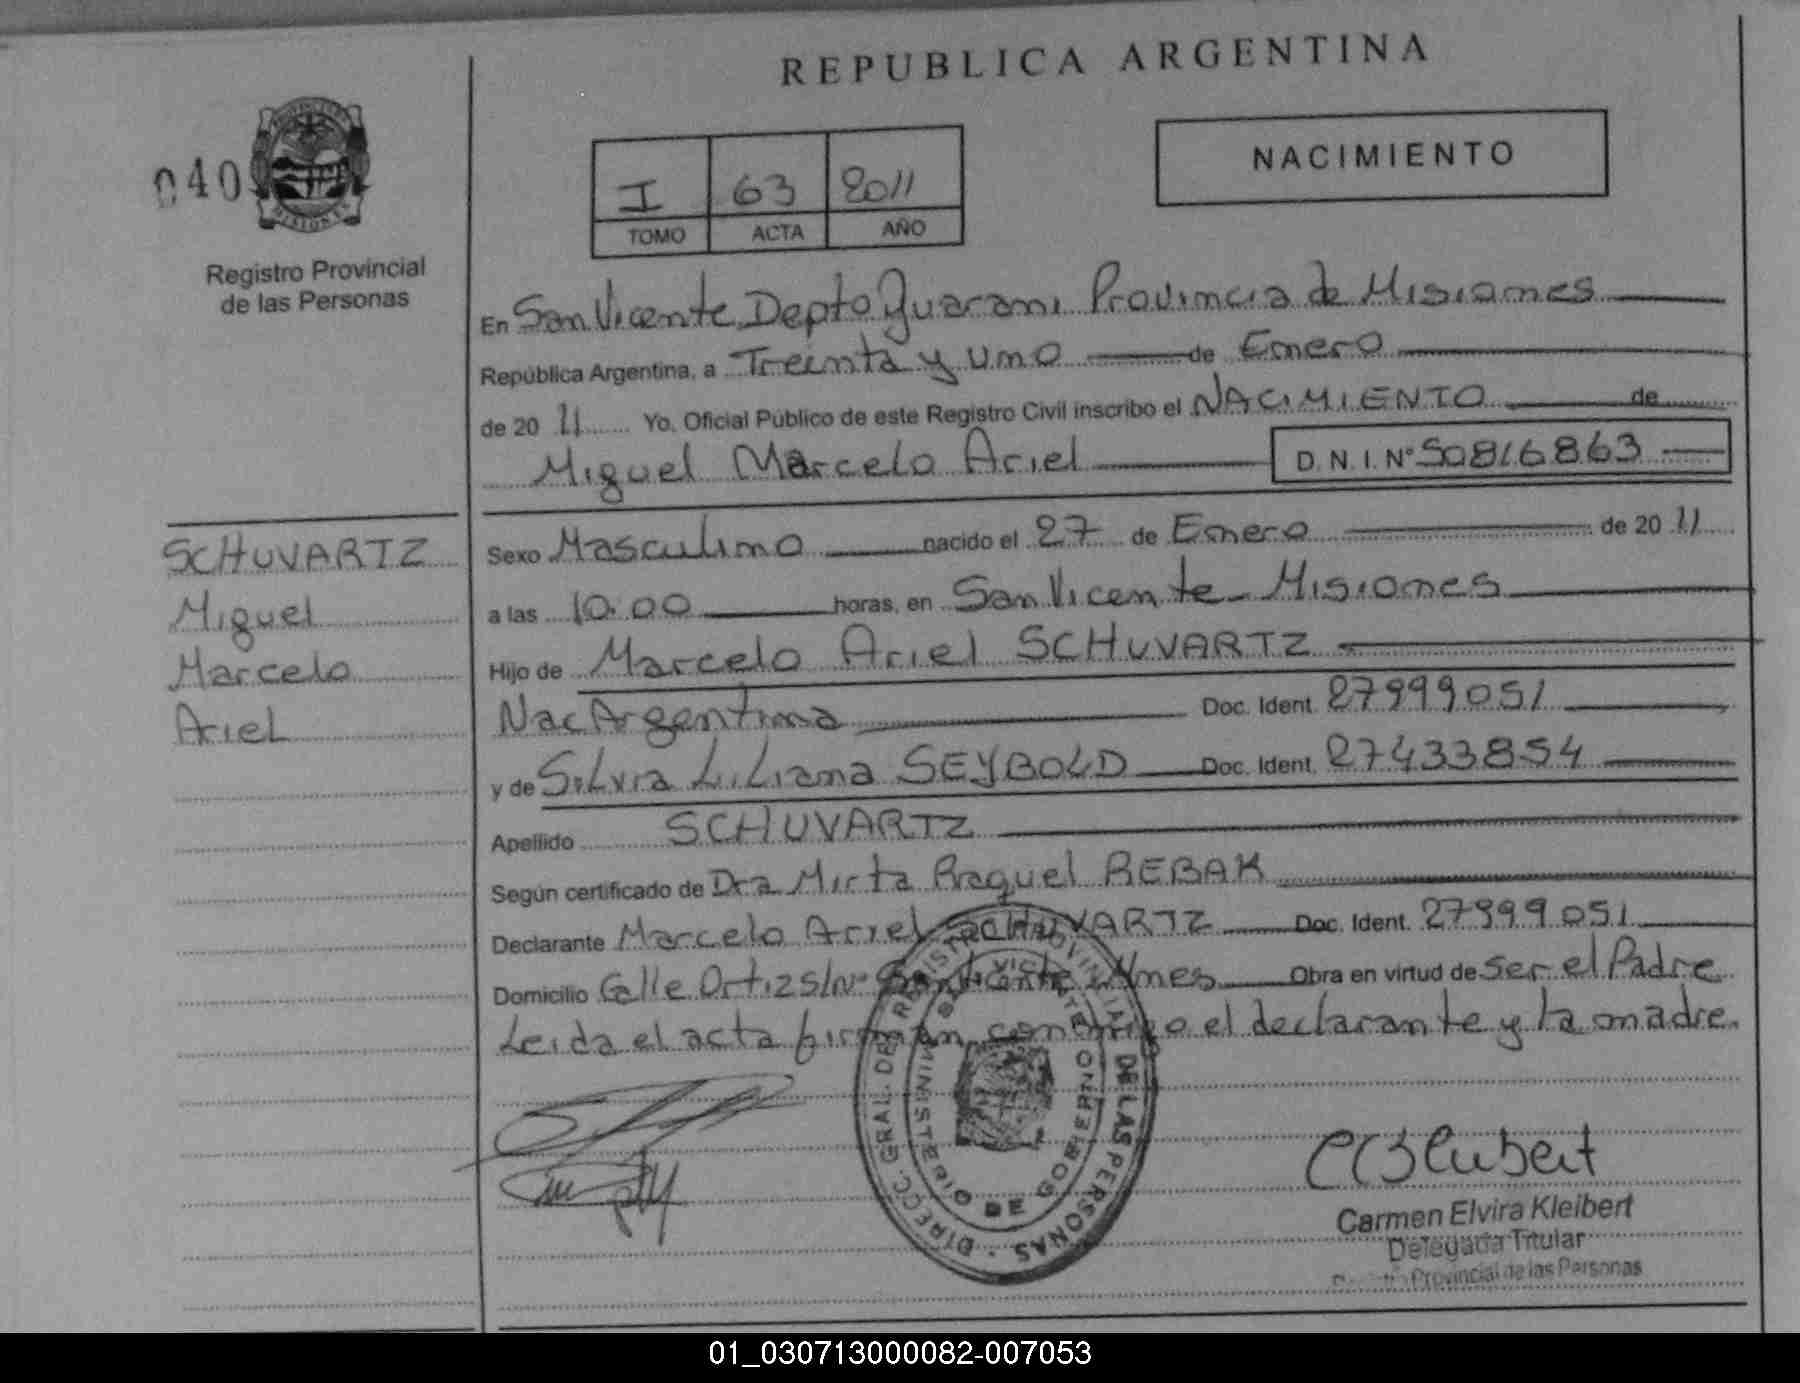 REPUBLICA ARGENTINA
040
PROVINCIA DE MISIONES
Registro Provincial
de las Personas
I 63 2011
TOMO ACTA AÑO
NACIMIENTO
En San Vicente Depto Guarani Provincia de Misiones
República Argentina, a Treinta y uno de Enero
de 2011 Yo, Oficial Público de este Registro Civil inscribo el NACIMIENTO de
Miguel Marcelo Ariel D.N.I. Nº 50816863
SCHUVARTZ
Miguel
Marcelo
Ariel
Sexo Masculino nacido el 27 de Enero de 2011
a las 10:00 horas, en San Vicente - Misiones
Hijo de Marcelo Ariel SCHUVARTZ
Nac Argentina Doc. Ident. 27999051
y de Silvia Liliana SEYBOLD Doc. Ident. 27433854
Apellido SCHUVARTZ
Según certificado de Dra Mirta Raquel REBAK
Declarante Marcelo Ariel SCHUVARTZ Doc. Ident. 27999051
Domicilio Calle Ortiz S/Nº San Vicente Mnes Obra en virtud de ser el Padre
Leida el acta firman conmigo el declarante y la madre.
DIRECC. GRAL. DEL REGISTRO PROVINCIAL DE LAS PERSONAS
MINISTERIO DE GOBIERNO
SAN VICENTE
Carmen Elvira Kleibert
Delegada Titular
Registro Provincial de las Personas
01_030713000082-007053